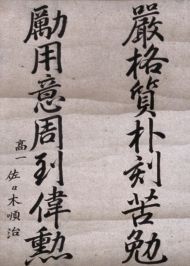 嚴格質朴刻苦勉
勵用意周到偉勲
高一 佐々木順治